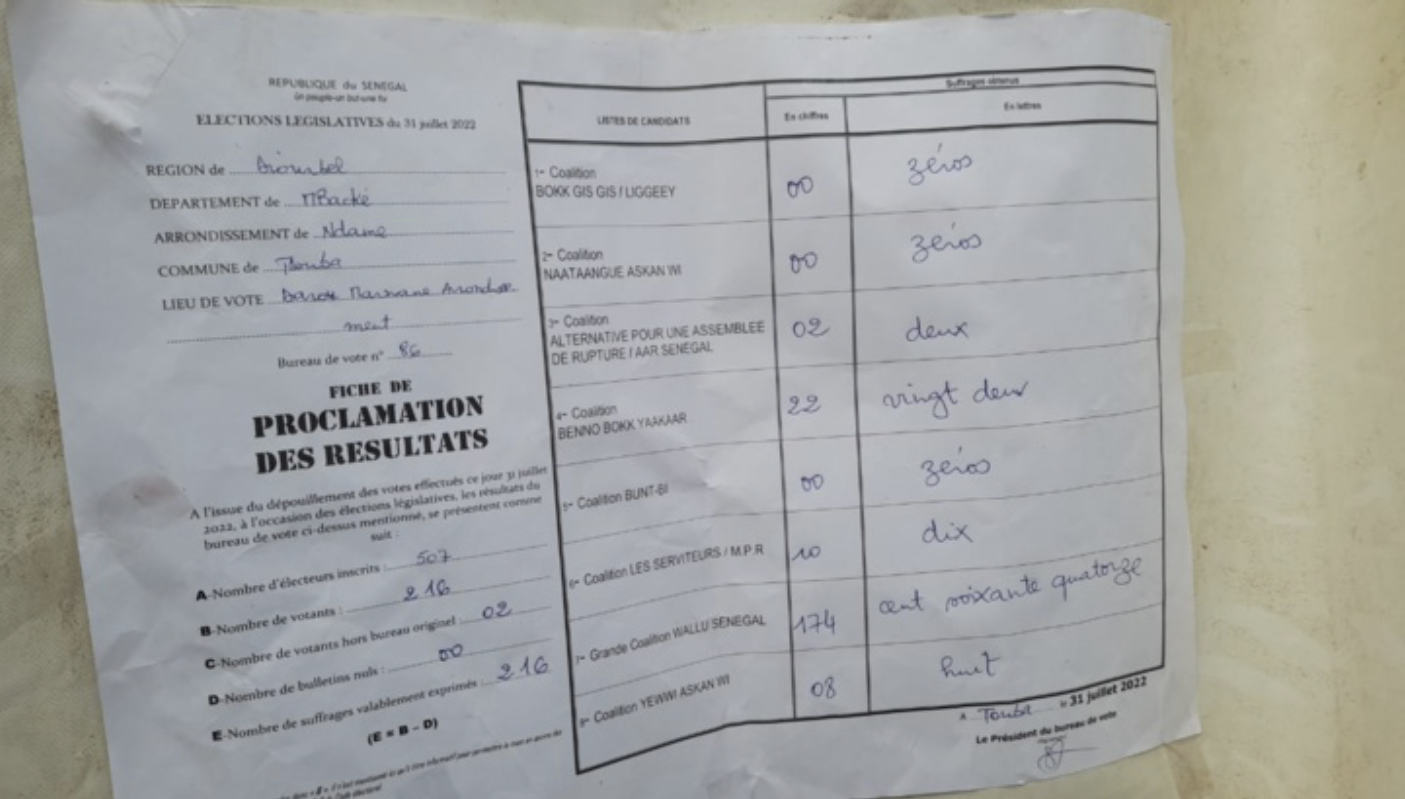 REPUBLIQUE du SENEGAL
Un peuple-un but-une foi
ELECTIONS LEGISLATIVES du 31 juillet 2022
REGION de Diourbel
DEPARTEMENT de MBacké
ARRONDISSEMENT de Ndame
COMMUNE de Touba
LIEU DE VOTE Darou Marnane Arrondisse
ment
Bureau de vote n° 86
FICHE DE
PROCLAMATION
DES RESULTATS
A l'issue du dépouillement des votes effectués ce jour 31 juillet
2022, à l'occasion des élections législatives, les résultats du
bureau de vote ci-dessus mentionné, se présentent comme
suit :
A-Nombre d'électeurs inscrits : 507
B-Nombre de votants : 216
C-Nombre de votants hors bureau originel : 02
D-Nombre de bulletins nuls : 00
E-Nombre de suffrages valablement exprimés : 216
(E = B - D)
LISTES DE CANDIDATS
Suffrages obtenus
En chiffres
En lettres
1- Coalition
BOKK GIS GIS / LIGGEEY
00 zéros
2- Coalition
NAATAANGUE ASKAN WI
00 zéros
3- Coalition
ALTERNATIVE POUR UNE ASSEMBLEE
DE RUPTURE / AAR SENEGAL
02 deux
4- Coalition
BENNO BOKK YAAKAAR
22 vingt deux
5- Coalition BUNT-BI
00 zéros
6- Coalition LES SERVITEURS / M.P.R
10 dix
7- Grande Coalition WALLU SENEGAL
174 cent soixante quatorze
8- Coalition YEWWI ASKAN WI
08 huit
A Touba le 31 juillet 2022
Le Président du bureau de vote